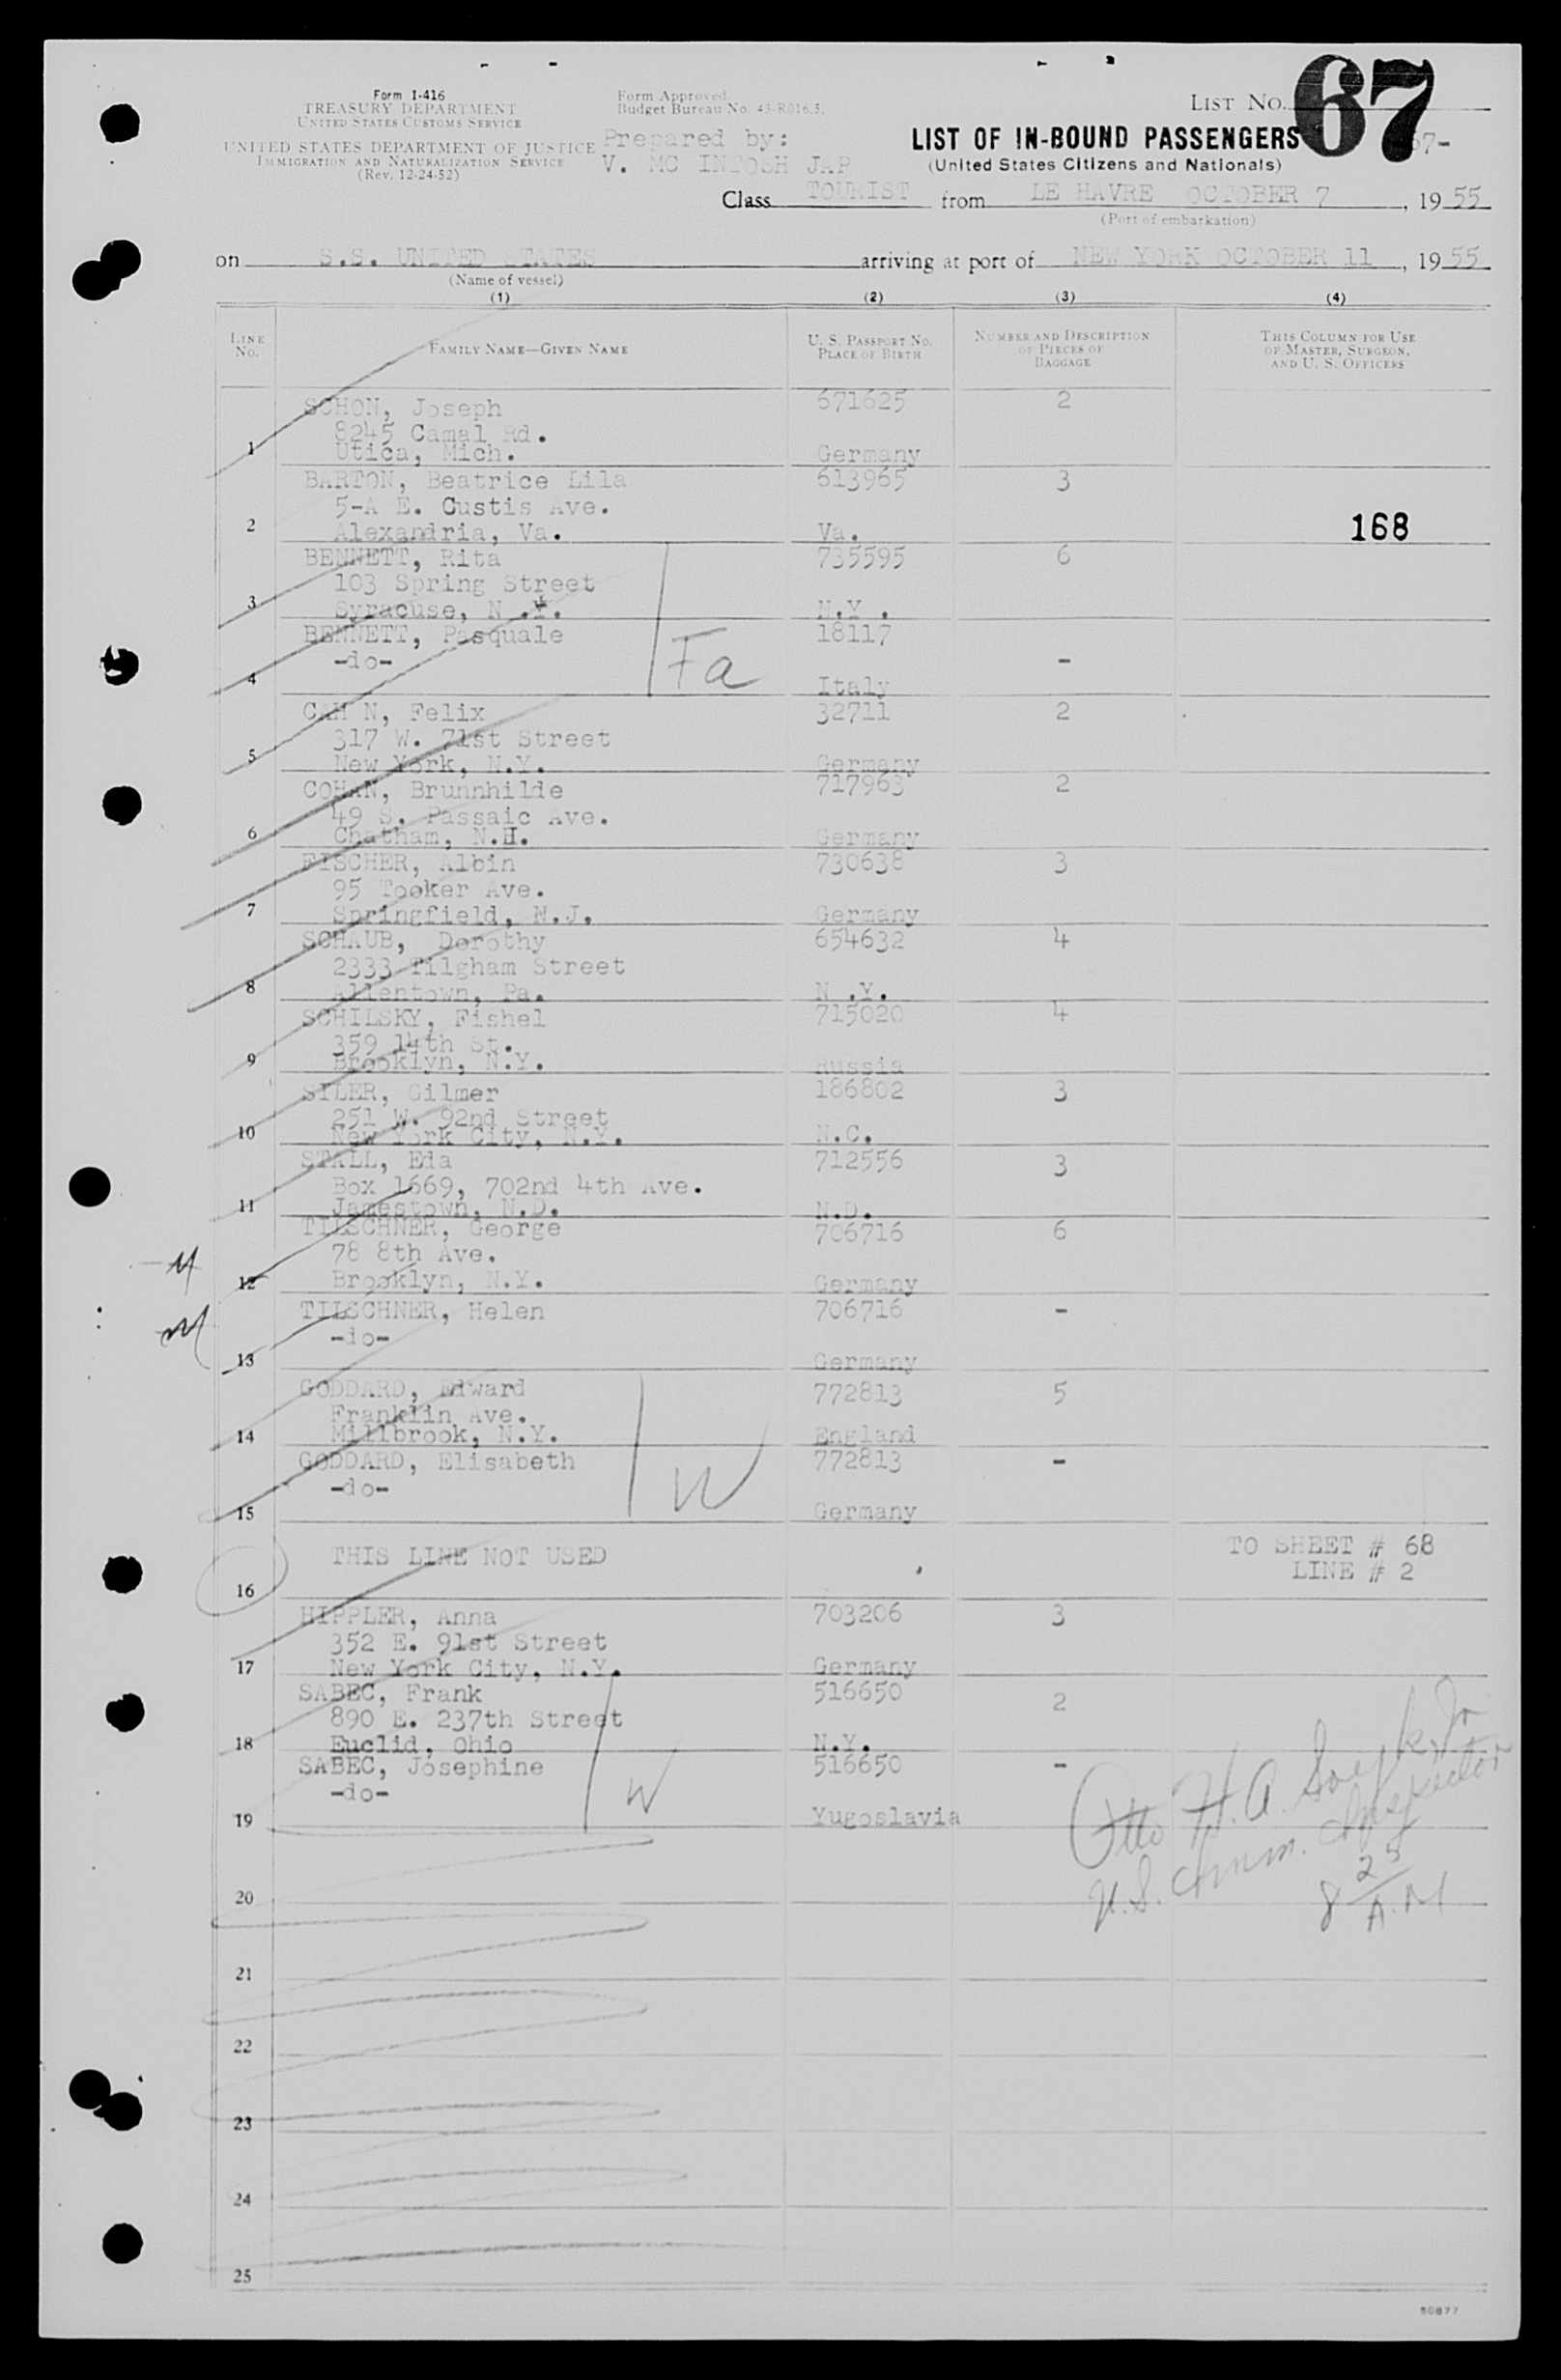 Form I-416
TREASURY DEPARTMENT
UNITED STATES CUSTOMS SERVICE
UNITED STATES DEPARTMENT OF JUSTICE
IMMIGRATION AND NATURALIZATION SERVICE
(Rev. 12-24-52)
Form Approved.
Budget Bureau No. 43-R016.3.
Prepared by:
V. MC INTOSH JAP
LIST NO. 67
LIST OF IN-BOUND PASSENGERS 67-
(United States Citizens and Nationals)
Class TOURIST from LE HAVRE OCTOBER 7, 1955
(Port of embarkation)
on S.S. UNITED STATES arriving at port of NEW YORK OCTOBER 11, 1955
(Name of vessel)
(1) (2) (3) (4)
LINE NO. FAMILY NAME—GIVEN NAME U. S. PASSPORT NO. PLACE OF BIRTH NUMBER AND DESCRIPTION OF PIECES OF BAGGAGE THIS COLUMN FOR USE OF MASTER, SURGEON, AND U. S. OFFICERS
SCHON, Joseph 671625 2
8245 Camal Rd.
1 Utica, Mich. Germany
BARTON, Beatrice Lila 613965 3
5-A E. Custis Ave.
2 Alexandria, Va. Va. 168
BENNETT, Rita 735595 6
103 Spring Street
3 Syracuse, N.Y. N.Y.
BENNETT, Pasquale 18117
-do- Fa -
4 Italy
CAH N, Felix 32711 2
317 W. 71st Street
5 New York, N.Y. Germany
COHAN, Brunnhilde 717963 2
49 S. Passaic Ave.
6 Chatham, N.H. Germany
FISCHER, Albin 730638 3
95 Tooker Ave.
7 Springfield, N.J. Germany
SCHAUB, Dorothy 654632 4
2333 Tilgham Street
8 Allentown, Pa. N.Y.
SCHILSKY, Fishel 715020 4
359 14th St.
9 Brooklyn, N.Y. Russia
SILER, Gilmer 186802 3
251 W. 92nd Street
10 New York City, N.Y. N.C.
STALL, Eda 712556 3
Box 1669, 702nd 4th Ave.
11 Jamestown, N.D. N.D.
TILSCHNER, George 706716 6
78 8th Ave.
M 12 Brooklyn, N.Y. Germany
TILSCHNER, Helen 706716 -
M -do-
13 Germany
GODDARD, Edward 772813 5
Franklin Ave.
14 Millbrook, N.Y. England
GODDARD, Elisabeth 772813 -
-do- W
15 Germany
THIS LINE NOT USED TO SHEET # 68
16 LINE # 2
HIPPLER, Anna 703206 3
352 E. 91st Street
17 New York City, N.Y. Germany
SABEC, Frank 516650 2
890 E. 237th Street
18 Euclid, Ohio N.Y.
SABEC, Josephine 516650 -
-do- W
19 Yugoslavia
Otto H. A.
U.S. Imm. Inspector
20 8 25 A.M
21
22
23
24
25
50877